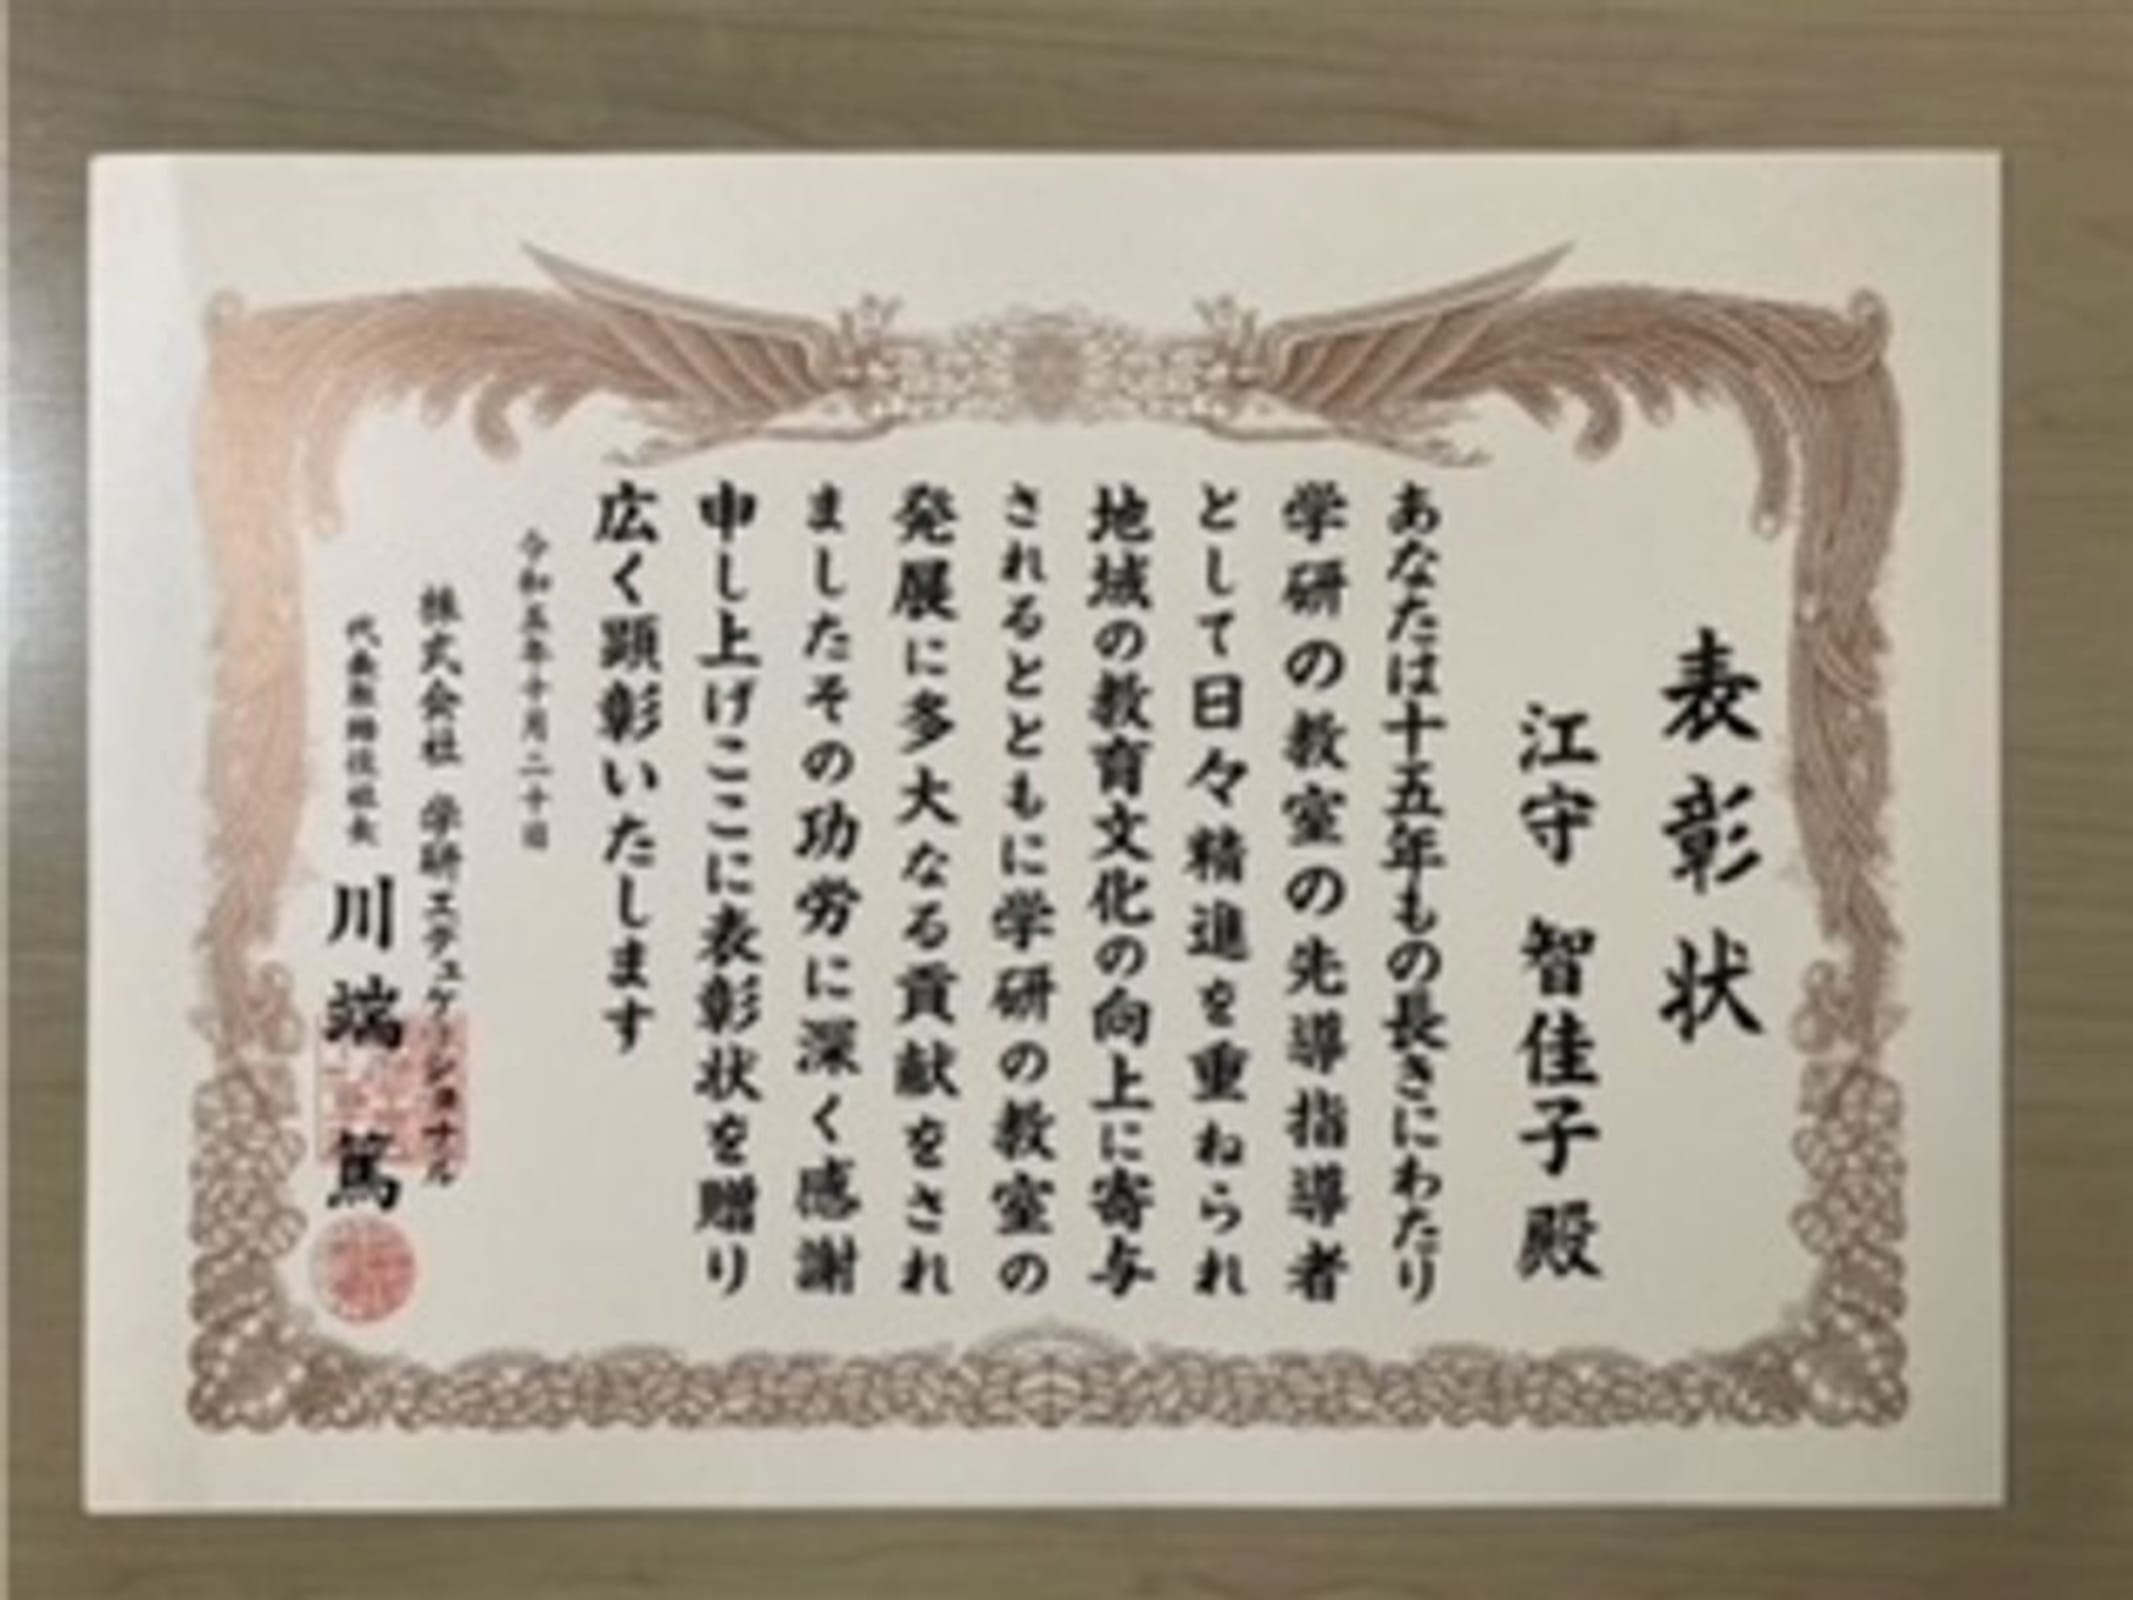 表彰状
江守 智佳子 殿
あなたは十五年もの長きにわたり
学研の教室の先導指導者
として日々精進を重ねられ
地域の教育文化の向上に寄与
されるとともに学研の教室の
発展に多大なる貢献をされ
ましたその功労に深く感謝
申し上げここに表彰状を贈り
広く顕彰いたします
令和五年十月二十日
株式会社 学研エデュケーショナル
代表取締役社長 川端 篤